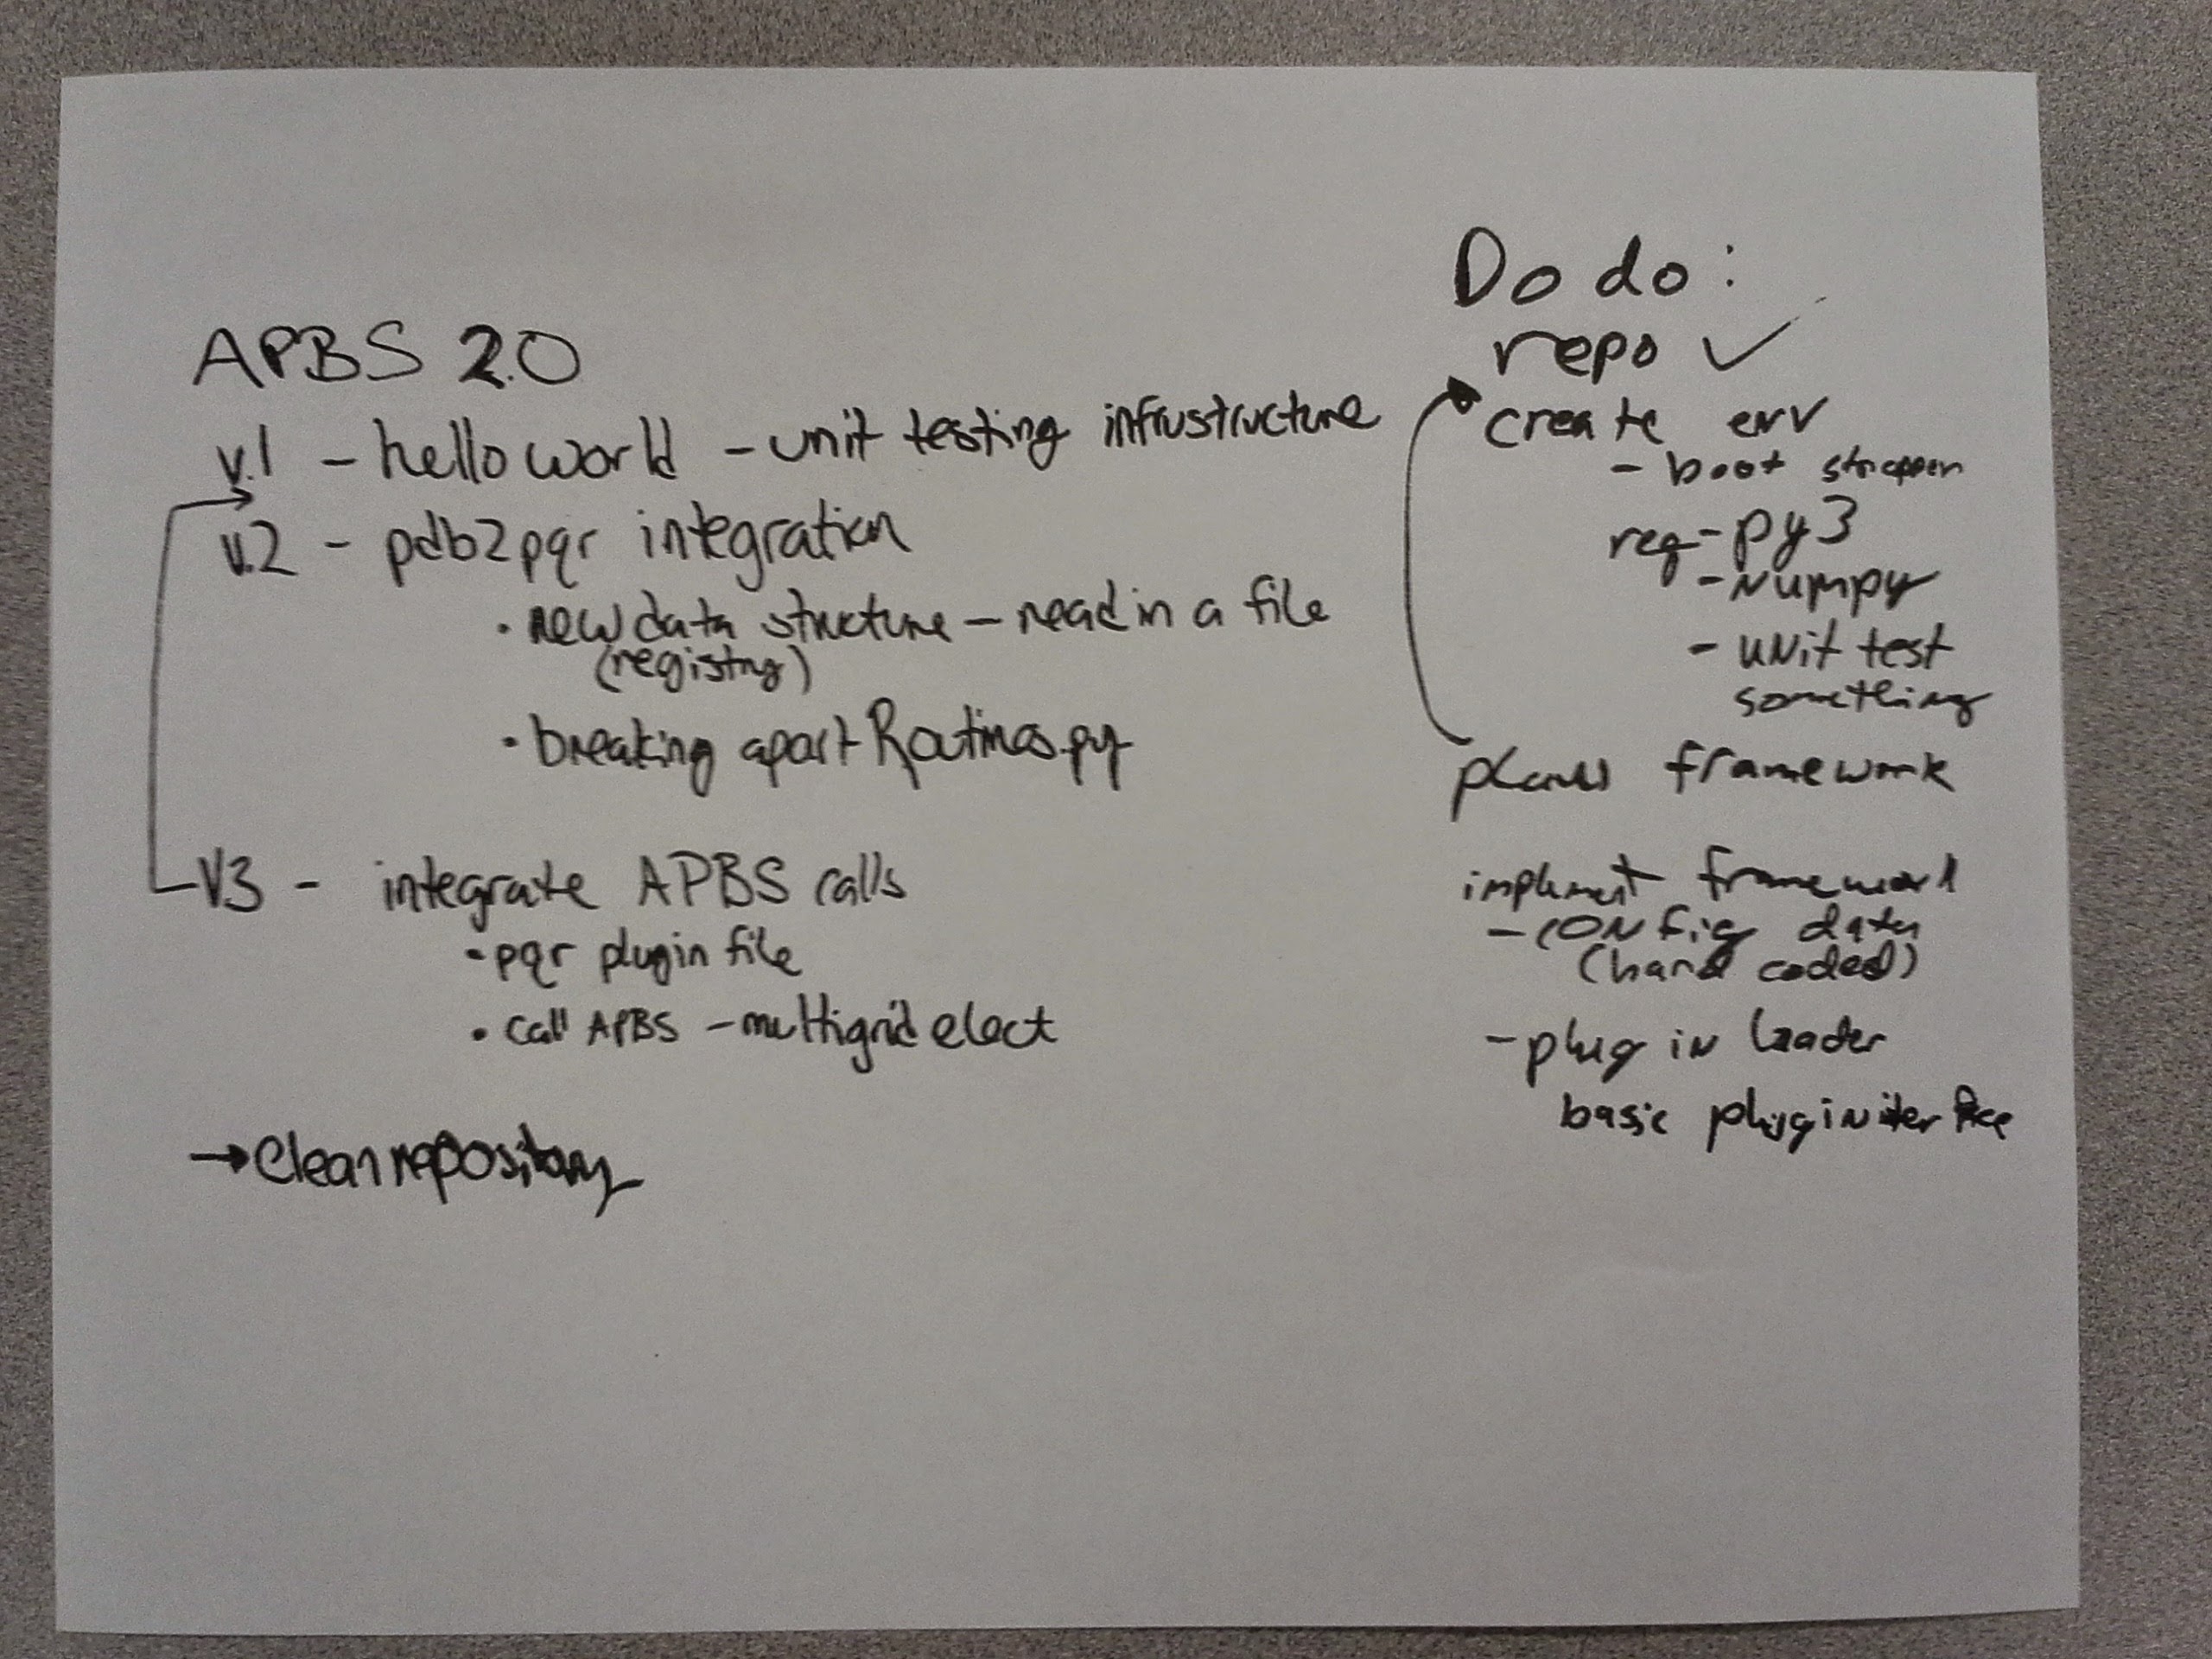 APBS 2.0
v.1 - hello world - unit testing infrustructure
v.2 - pdb2pqr integration
• new data structure - read in a file
(registry)
• breaking apart Routines.py
V3 - integrate APBS calls
• pqr plugin file
• call APBS - multigrid elect
→ Clean repository
Do do:
repo ✓
create env
- boot strapper
req - py3
- Numpy
- unit test
something
framework
implement framework
- config data
(hand coded)
- plug in loader
basic plugin interface